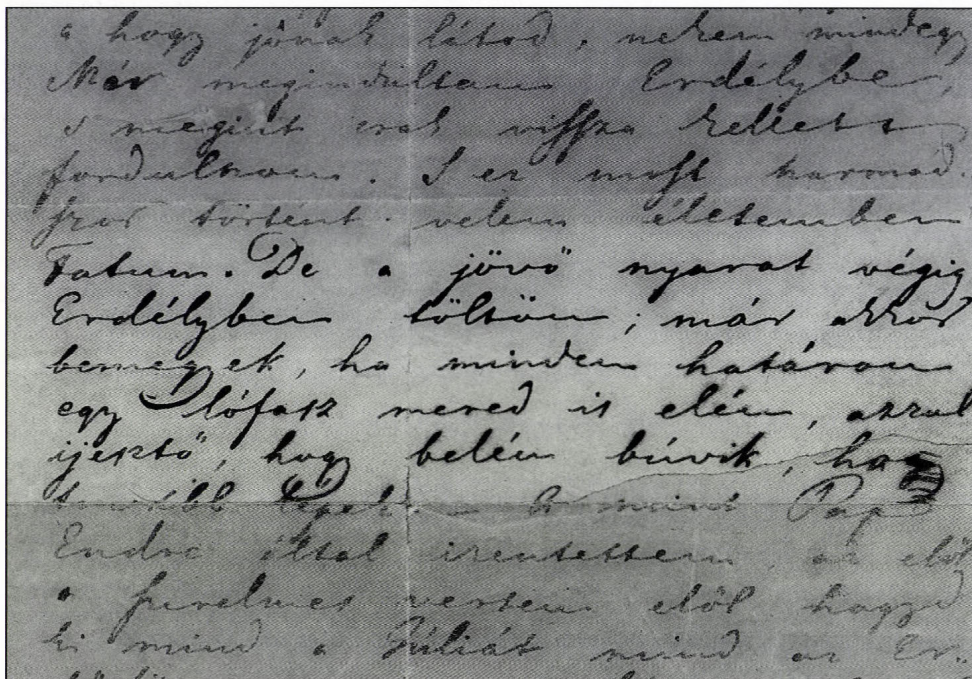 a hogy jónak látod, nekem mindegy
Már megindultam Erdélybe,
s megint csak vissza kellett
fordulnom. S ez most harmad-
szor történt velem életemben
Fatum. De a jövő nyarat végig
Erdélyben töltöm; már akkor
bemegyek, ha minden határon
egy lófasz mered is elém, azzal
ijesztő, hogy belém búvik, ha
tovább lépek. – A mint Pap
Endre által izentettem, az elől
a szerelmes verseim elől hagyd
ki mind a Júliát mind az Er-